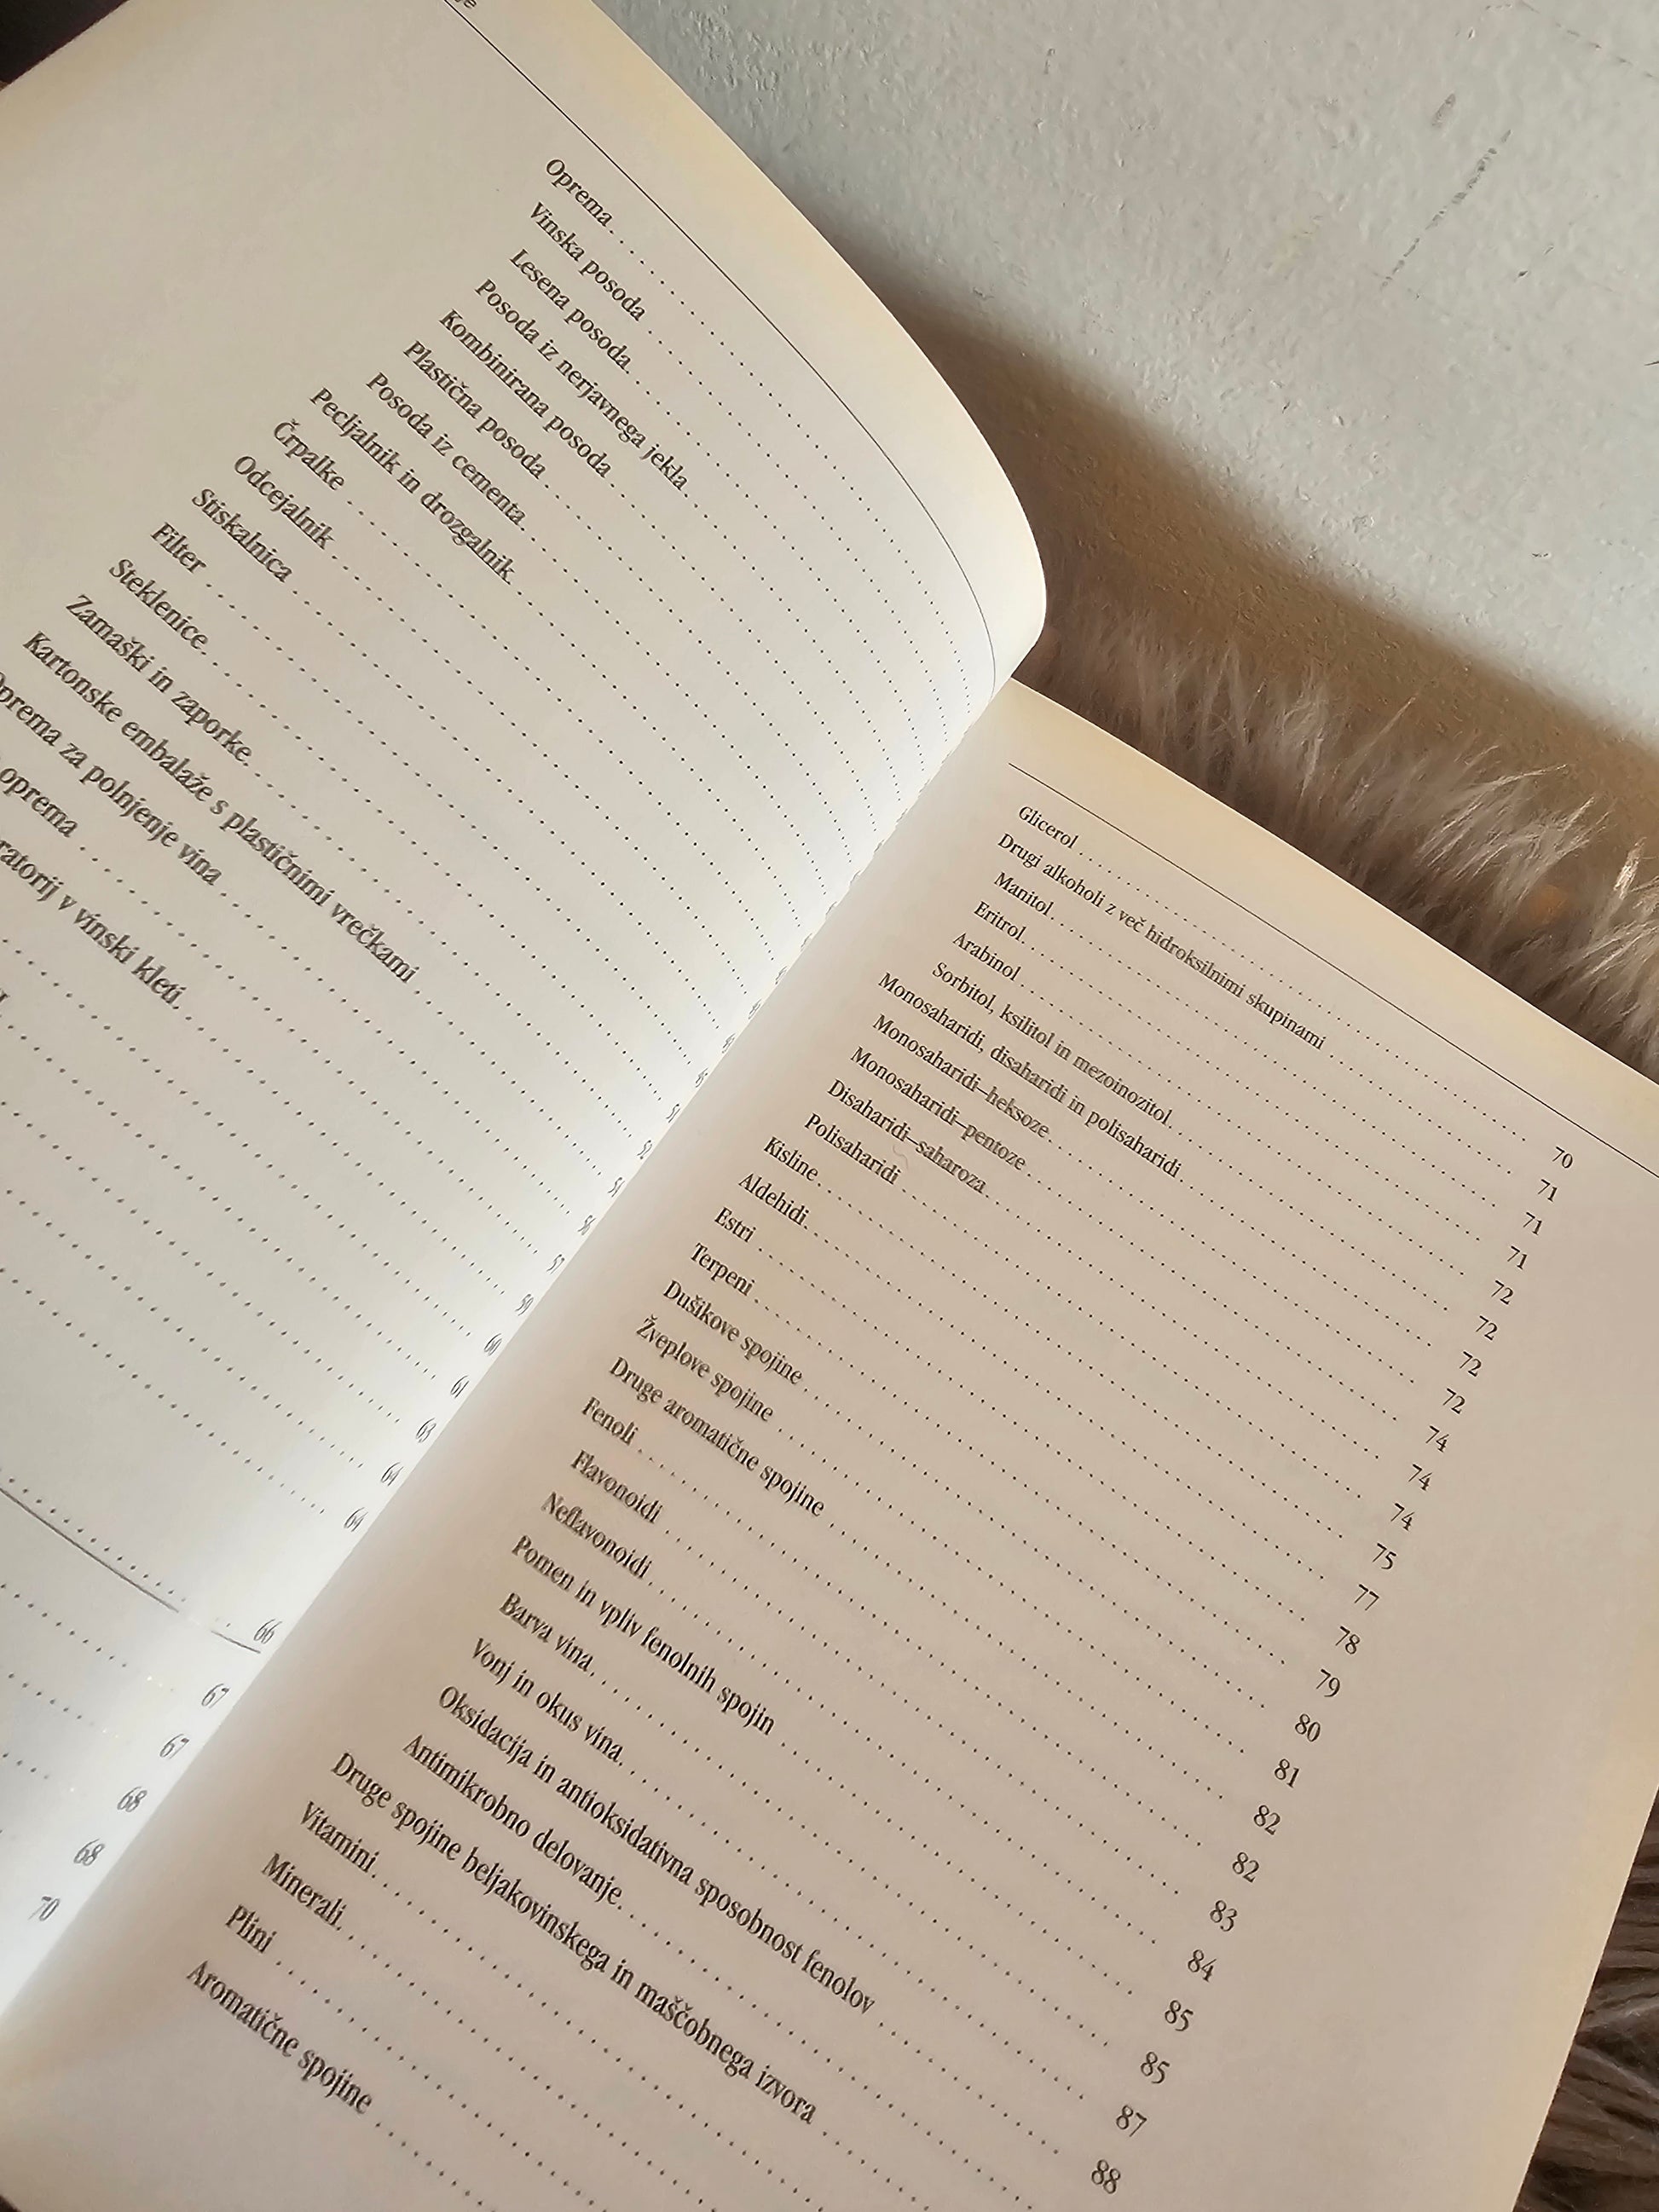 Oprema
Vinska posoda
Lesena posoda
Posoda iz nerjavnega jekla
Kombinirana posoda
Plastična posoda
Posoda iz cementa
Pecljalnik in drozgalnik
Črpalke
Odcejalnik
Stiskalnica
Filter
Steklenice
Zamaški in zaporke
Kartonske embalaže s plastičnimi vrečkami
za polnjenje vina
oprema
v vinski kleti
51
52
54
56
57
59
60
61
63
64
64
66
67
67
68
68
70
Glicerol 70
Drugi alkoholi z več hidroksilnimi skupinami 71
Manitol 71
Eritrol 71
Arabinol 72
Sorbitol, ksilitol in mezoinozitol 72
Monosaharidi, disaharidi in polisaharidi 72
Monosaharidi–heksoze 72
Monosaharidi–pentoze 74
Disaharidi–saharoza 74
Polisaharidi 74
Kisline 75
Aldehidi 77
Estri 78
Terpeni 79
Dušikove spojine 80
Žveplove spojine 81
Druge aromatične spojine 82
Fenoli 82
Flavonoidi 83
Neflavonoidi 84
Pomen in vpliv fenolnih spojin 85
Barva vina 85
Vonj in okus vina 87
Oksidacija in antioksidativna sposobnost fenolov 88
Antimikrobno delovanje
Druge spojine beljakovinskega in maščobnega izvora
Vitamini
Minerali
Plini
Aromatične spojine